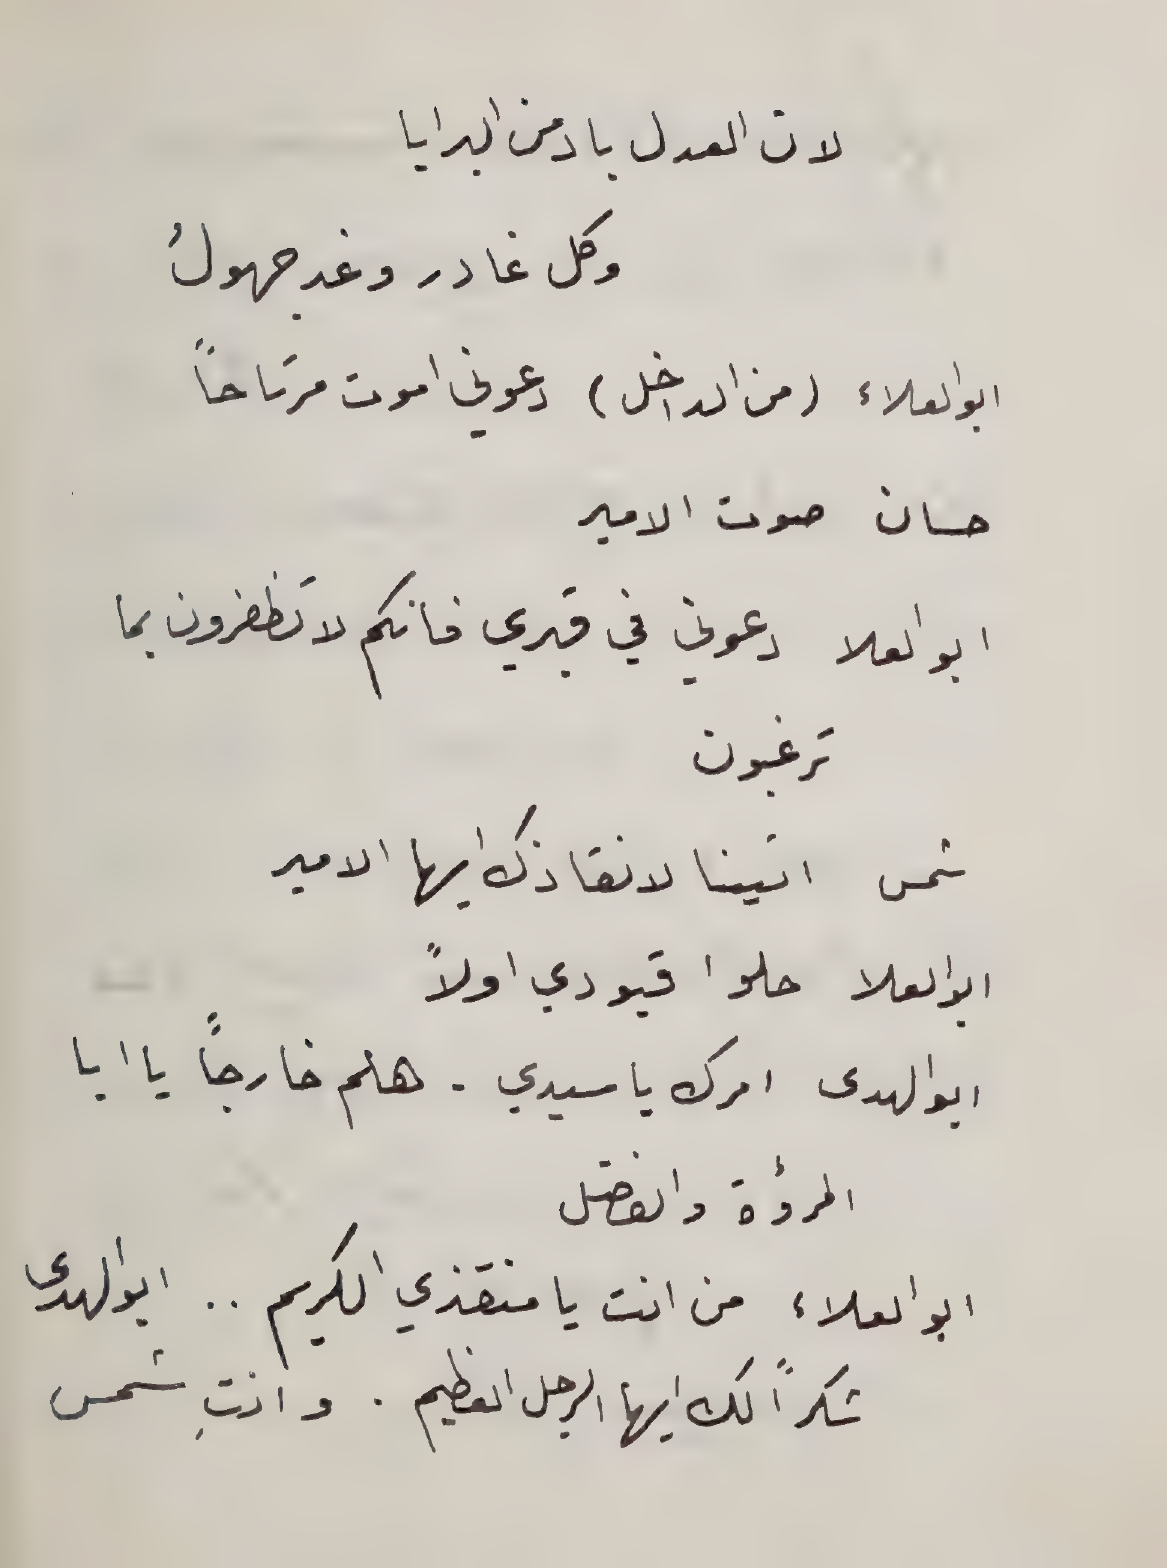 لان العدل باد من البرايا
وكل غادر وغد جهولُ
ابو العلاء (من الداخل) دعوني اموت مرتاحاً
حسان صوت الامير
ابو العلا دعوني في قبري فانكم لا تظفرون بما
ترغبون
شمس اتينا لانقاذك ايها الامير
ابو العلا حلوا قيودي اولاً
ابو الهدى امرك يا سيدي . هلم خارجاً يا ابا
المرؤة والفضل
ابو العلاء من انت يا منقذي الكريم .. ابو الهدى
شكراً لك ايها الرجل العظيم . وانتِ شمس